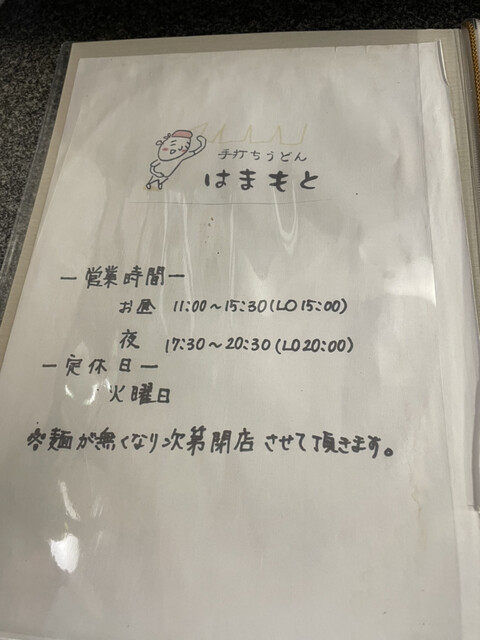 手打ちうどん
はまもと
ー営業時間ー
お昼 11:00〜15:30(LO 15:00)
夜 17:30〜20:30(LO 20:00)
ー定休日ー
火曜日
麺が無くなり次第閉店させて頂きます。